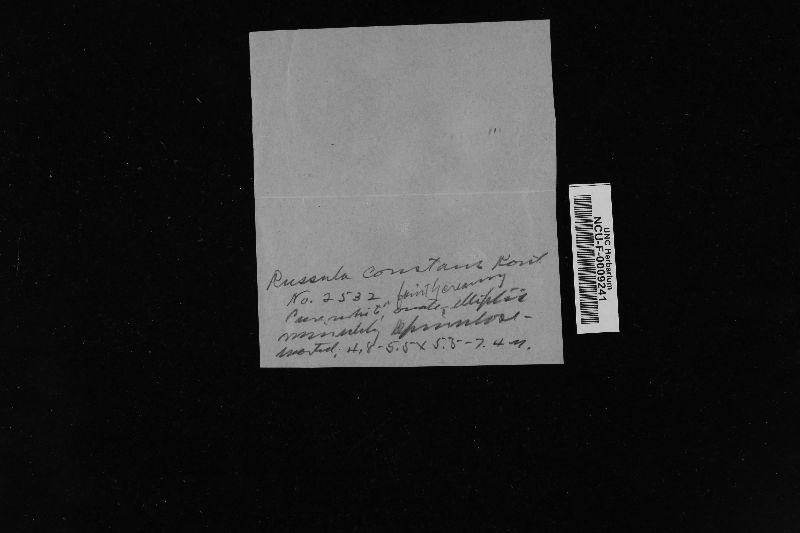 Russula constans Karst
No. 2532
Pure white, faintly creamy
ovate, elliptic
minutely spinulose-
warted, 4.8-5.5 x 5.5-7.4 µ.
UNC Herbarium
NCU-F-0009241